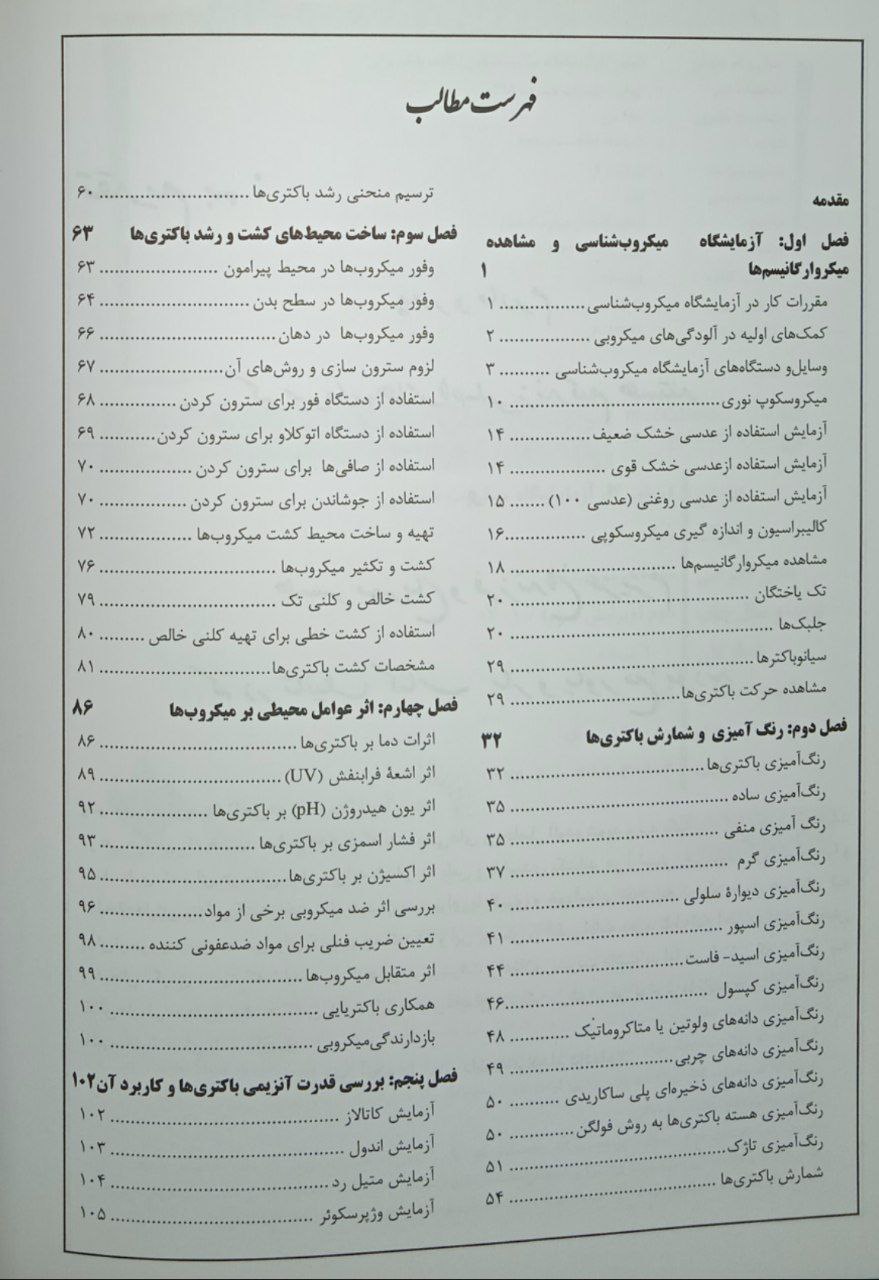 فهرست مطالب
مقدمه
فصل اول: آزمایشگاه میکروب‌شناسی و مشاهده
میکروارگانیسم‌ها ۱
مقررات کار در آزمایشگاه میکروب‌شناسی ................. ۱
کمک‌های اولیه در آلودگی‌های میکروبی .................. ۲
وسایل‌و دستگاه‌های آزمایشگاه میکروب‌شناسی .......... ۳
میکروسکوپ نوری .......................................... ۱۰
آزمایش استفاده از عدسی خشک ضعیف ................ ۱۴
آزمایش استفاده ازعدسی خشک قوی ................... ۱۴
آزمایش استفاده از عدسی روغنی (عدسی ۱۰۰) ....... ۱۵
کالیبراسیون و اندازه گیری میکروسکوپی ................ ۱۶
مشاهده میکروارگانیسم‌ها ................................. ۱۸
تک یاختگان ................................................ ۲۰
جلبک‌ها ..................................................... ۲۰
سیانوباکترها ................................................. ۲۹
مشاهده حرکت باکتری‌ها .................................. ۲۹
فصل دوم: رنگ آمیزی و شمارش باکتری‌ها ۳۲
رنگ‌آمیزی باکتری‌ها ....................................... ۳۲
رنگ‌آمیزی ساده ............................................ ۳۵
رنگ آمیزی منفی .......................................... ۳۵
رنگ‌آمیزی گرم ............................................ ۳۷
رنگ‌آمیزی دیوارهٔ سلولی .................................. ۴۰
رنگ‌آمیزی اسپور ........................................... ۴۱
رنگ‌آمیزی اسید- فاست ................................... ۴۴
رنگ‌آمیزی کپسول ......................................... ۴۶
رنگ‌آمیزی دانه‌های ولوتین یا متاکروماتیک ............ ۴۸
رنگ‌آمیزی دانه‌های چربی ................................. ۴۹
رنگ‌آمیزی دانه‌های ذخیره‌ای پلی ساکاریدی .......... ۵۰
رنگ‌آمیزی هسته باکتری‌ها به روش فولگن ............. ۵۰
رنگ‌آمیزی تاژک ............................................ ۵۱
شمارش باکتری‌ها .......................................... ۵۴
ترسیم منحنی رشد باکتری‌ها .............................. ۶۰
فصل سوم: ساخت محیط‌های کشت و رشد باکتری‌ها ۶۳
وفور میکروب‌ها در محیط پیرامون ........................ ۶۳
وفور میکروب‌ها در سطح بدن .............................. ۶۴
وفور میکروب‌ها در دهان ................................... ۶۶
لزوم سترون سازی و روش‌های آن ......................... ۶۷
استفاده از دستگاه فور برای سترون کردن ................ ۶۸
استفاده از دستگاه اتوکلاو برای سترون کردن ........... ۶۹
استفاده از صافی‌ها برای سترون کردن ................... ۷۰
استفاده از جوشاندن برای سترون کردن .................. ۷۰
تهیه و ساخت محیط کشت میکروب‌ها ................... ۷۲
کشت و تکثیر میکروب‌ها ................................... ۷۶
کشت خالص و کلنی تک ................................... ۷۹
استفاده از کشت خطی برای تهیه کلنی خالص ......... ۸۰
مشخصات کشت باکتری‌ها .................................. ۸۱
فصل چهارم: اثر عوامل محیطی بر میکروب‌ها ۸۶
اثرات دما بر باکتری‌ها ....................................... ۸۶
اثر اشعهٔ فرابنفش (UV) .................................... ۸۹
اثر یون هیدروژن (pH) بر باکتری‌ها ..................... ۹۲
اثر فشار اسمزی بر باکتری‌ها ............................... ۹۳
اثر اکسیژن بر باکتری‌ها ..................................... ۹۵
بررسی اثر ضد میکروبی برخی از مواد ..................... ۹۶
تعیین ضریب فنلی برای مواد ضدعفونی کننده ......... ۹۸
اثر متقابل میکروب‌ها ........................................ ۹۹
همکاری باکتریایی ......................................... ۱۰۰
بازدارندگی‌میکروبی ........................................ ۱۰۰
فصل پنجم: بررسی قدرت آنزیمی باکتری‌ها و کاربرد آن ۱۰۲
آزمایش کاتالاز ............................................. ۱۰۲
آزمایش اندول .............................................. ۱۰۳
آزمایش متیل رد ........................................... ۱۰۴
آزمایش وژپرسکوئر ........................................ ۱۰۵